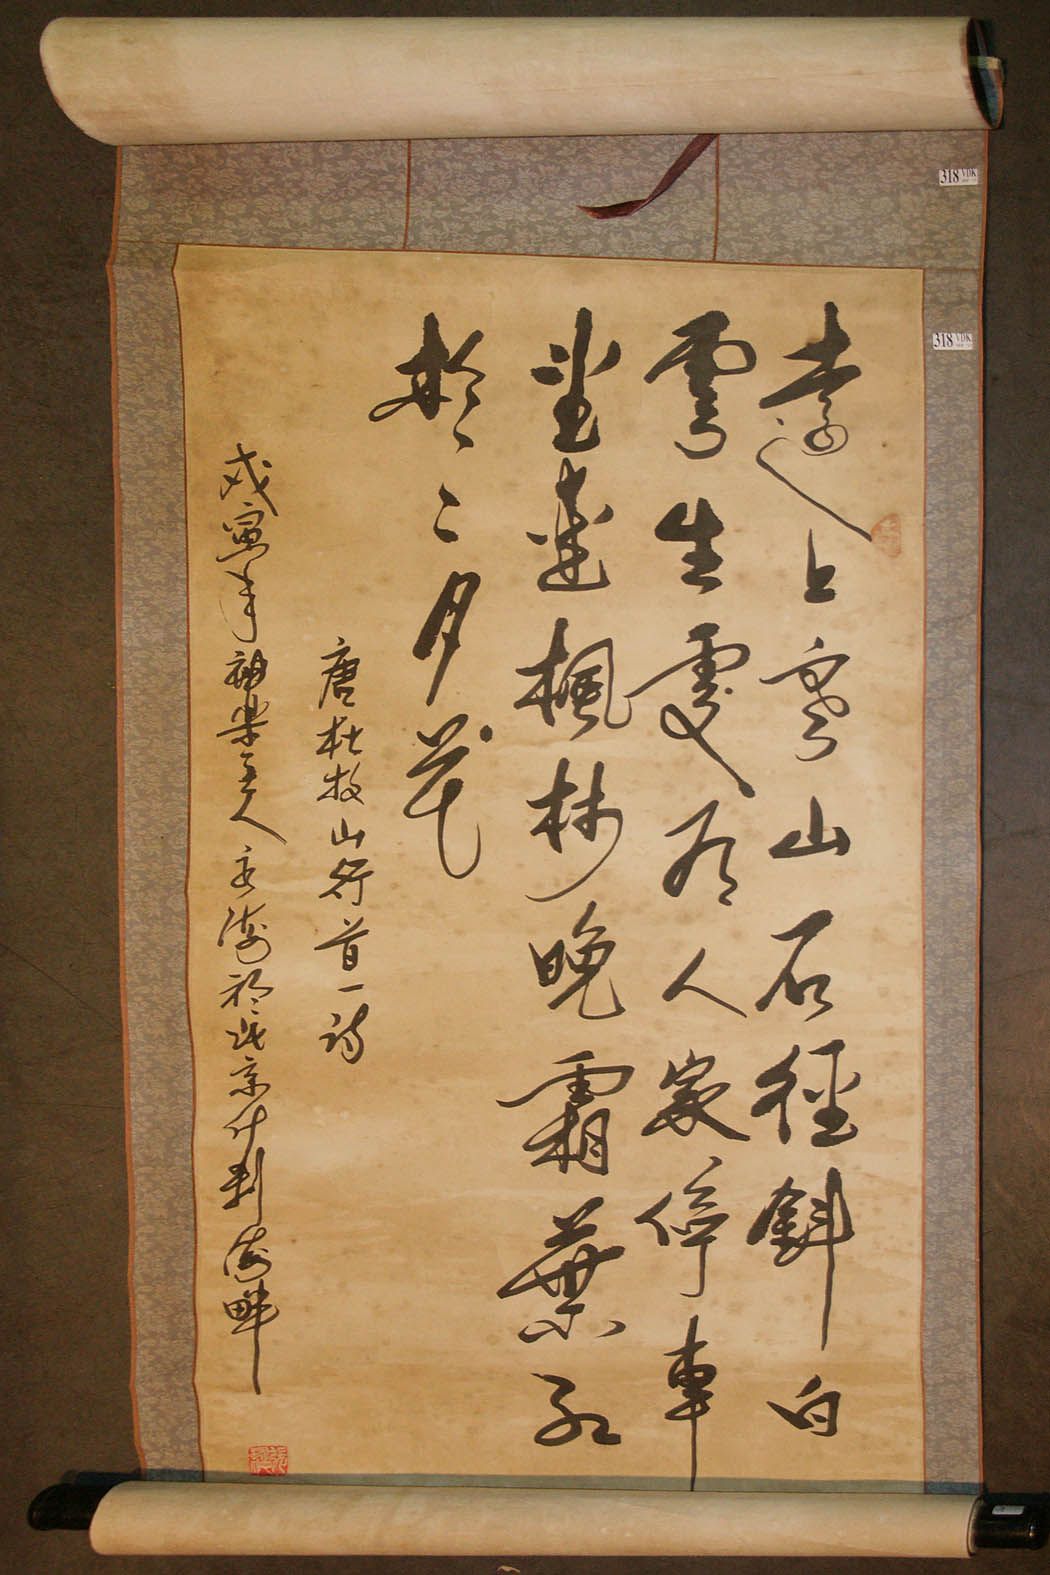 318 VDK
318 VDK
遠上寒山石徑斜白
雲生處有人家停車
坐愛楓林晚霜葉紅
於二月花
唐杜牧山行首一詩
戊寅年主人於北京什刹海畔